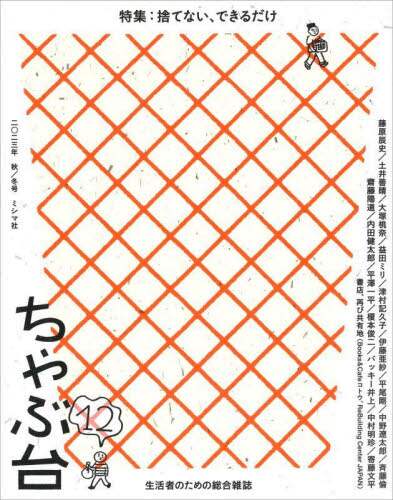 特集：捨てない、できるだけ
藤原辰史／土井善晴／大塚桃奈／益田ミリ／津村記久子／伊藤亜紗／平尾剛／中野遼太郎／斉藤倫
齋藤陽道／内田健太郎／平澤一平／榎本俊二／バッキー井上／中村明珍／寄藤文平
書店、再び共有地（Books&Cafe ReBuilding Center JAPAN）
二〇二三年 秋／冬号 ミシマ社
ちゃぶ台
12
生活者のための総合雑誌